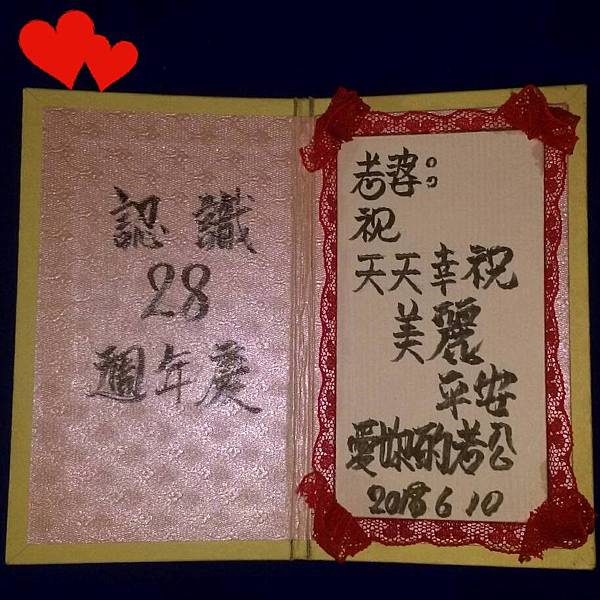 認識
28
週年慶
老婆:
祝
天天幸祝
美麗
平安
愛妳的老公
2018 6 10